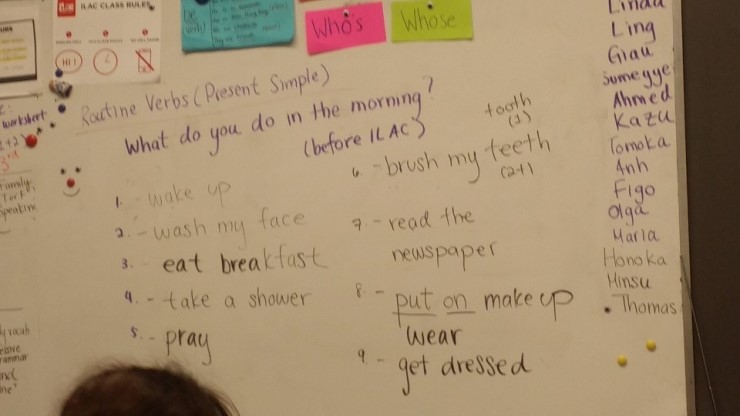 ILAC CLASS RULES
HI!
Who's
Whose
Routine Verbs (Present Simple)
What do you do in the morning?
(before ILAC)
1. - wake up
2. - wash my face
3. eat breakfast
4. - take a shower
5. - pray
tooth
(1)
6. - brush my teeth
(2+)
7. - read the
newspaper
8 - put on make up
wear
9. - get dressed
Linda
Ling
Giau
Sumeyye
Ahmed
Kazu
Tomoka
Anh
Figo
Olga
Maria
Honoka
Hinsu
• Thomas
worksheet
3rd
Family,
Speaking